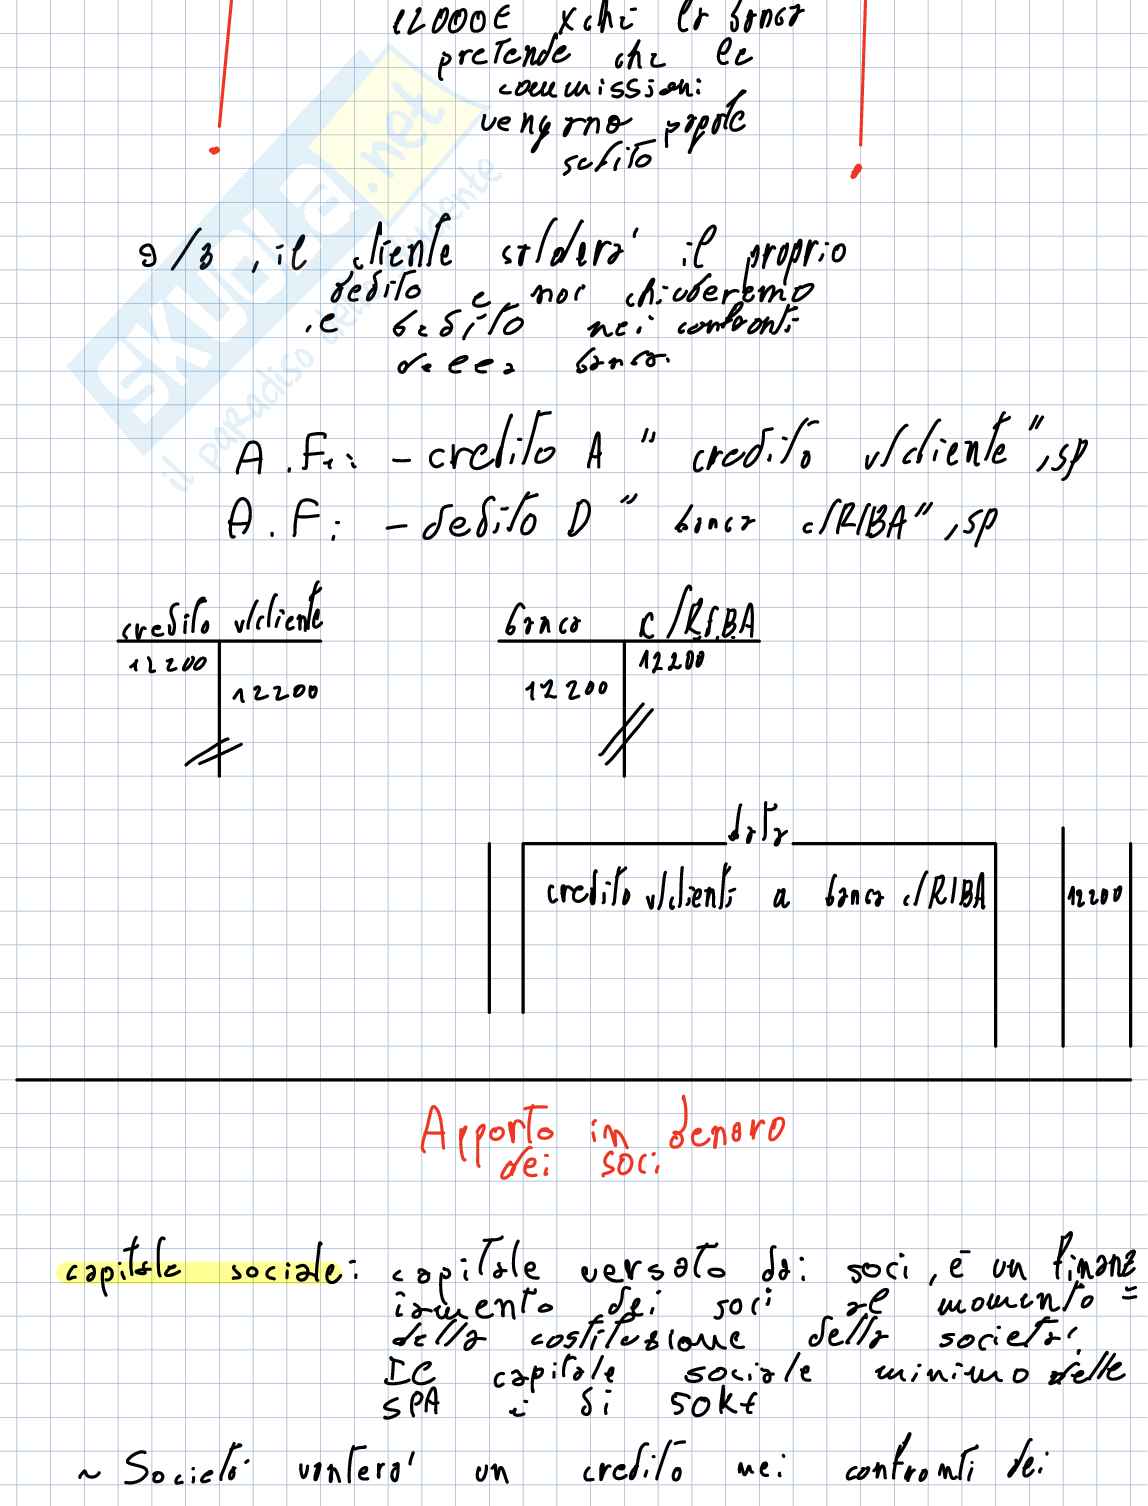 12000€ xchè la banca
pretende che le
commissioni
vengano pagate
subito
SKUOLA.net
il paradiso dello studente
9/3, il cliente salderà il proprio
debito e noi chiuderemo
il debito nei confronti
della banca.
A.F+: - credito A "credito v/cliente", sp
A.F: - debito D "banca c/RIBA", sp
credito v/cliente
banca c/RI.BA
12200
12200
12200
12200
data
credito v/clienti a banca c/RIBA
12200
Apporto in denaro
dei soci
capitale sociale: capitale versato dai soci, è un finanz
iamento dei soci al momento =
della costituzione della società.
Il capitale sociale minimo delle
SPA è di 50k€
~ Società vanterà un credito nei confronti dei